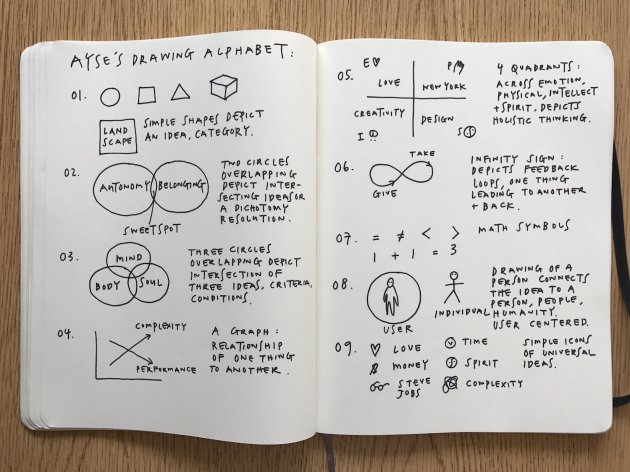 AYSE'S DRAWING ALPHABET:
01.
LAND
SCAPE
SIMPLE SHAPES DEPICT
AN IDEA, CATEGORY.
02.
AUTONOMY BELONGING
SWEETSPOT
TWO CIRCLES
OVERLAPPING
DEPICT INTER-
SECTING IDEAS OR
A DICHOTOMY
RESOLUTION.
03.
MIND
BODY SOUL
THREE CIRCLES
OVERLAPPING DEPICT
INTERSECTION OF
THREE IDEAS, CRITERIA,
CONDITIONS.
04.
COMPLEXITY
PERFORMANCE
A GRAPH:
RELATIONSHIP
OF ONE THING
TO ANOTHER.
05.
E♡ P
LOVE NEW YORK
CREATIVITY DESIGN
I S
4 QUADRANTS:
ACROSS EMOTION,
PHYSICAL, INTELLECT
+ SPIRIT, DEPICTS
HOLISTIC THINKING.
06.
TAKE
GIVE
INFINITY SIGN:
DEPICTS FEEDBACK
LOOPS, ONE THING
LEADING TO ANOTHER
+ BACK.
07. = ≠ < >
1 + 1 = 3
MATH SYMBOLS
08.
USER
INDIVIDUAL
DRAWING OF A
PERSON CONNECTS
THE IDEA TO A
PERSON, PEOPLE,
HUMANITY.
USER CENTERED.
09. ♡ LOVE
$ MONEY
STEVE
JOBS
TIME
SPIRIT
COMPLEXITY
SIMPLE ICONS
OF UNIVERSAL
IDEAS.